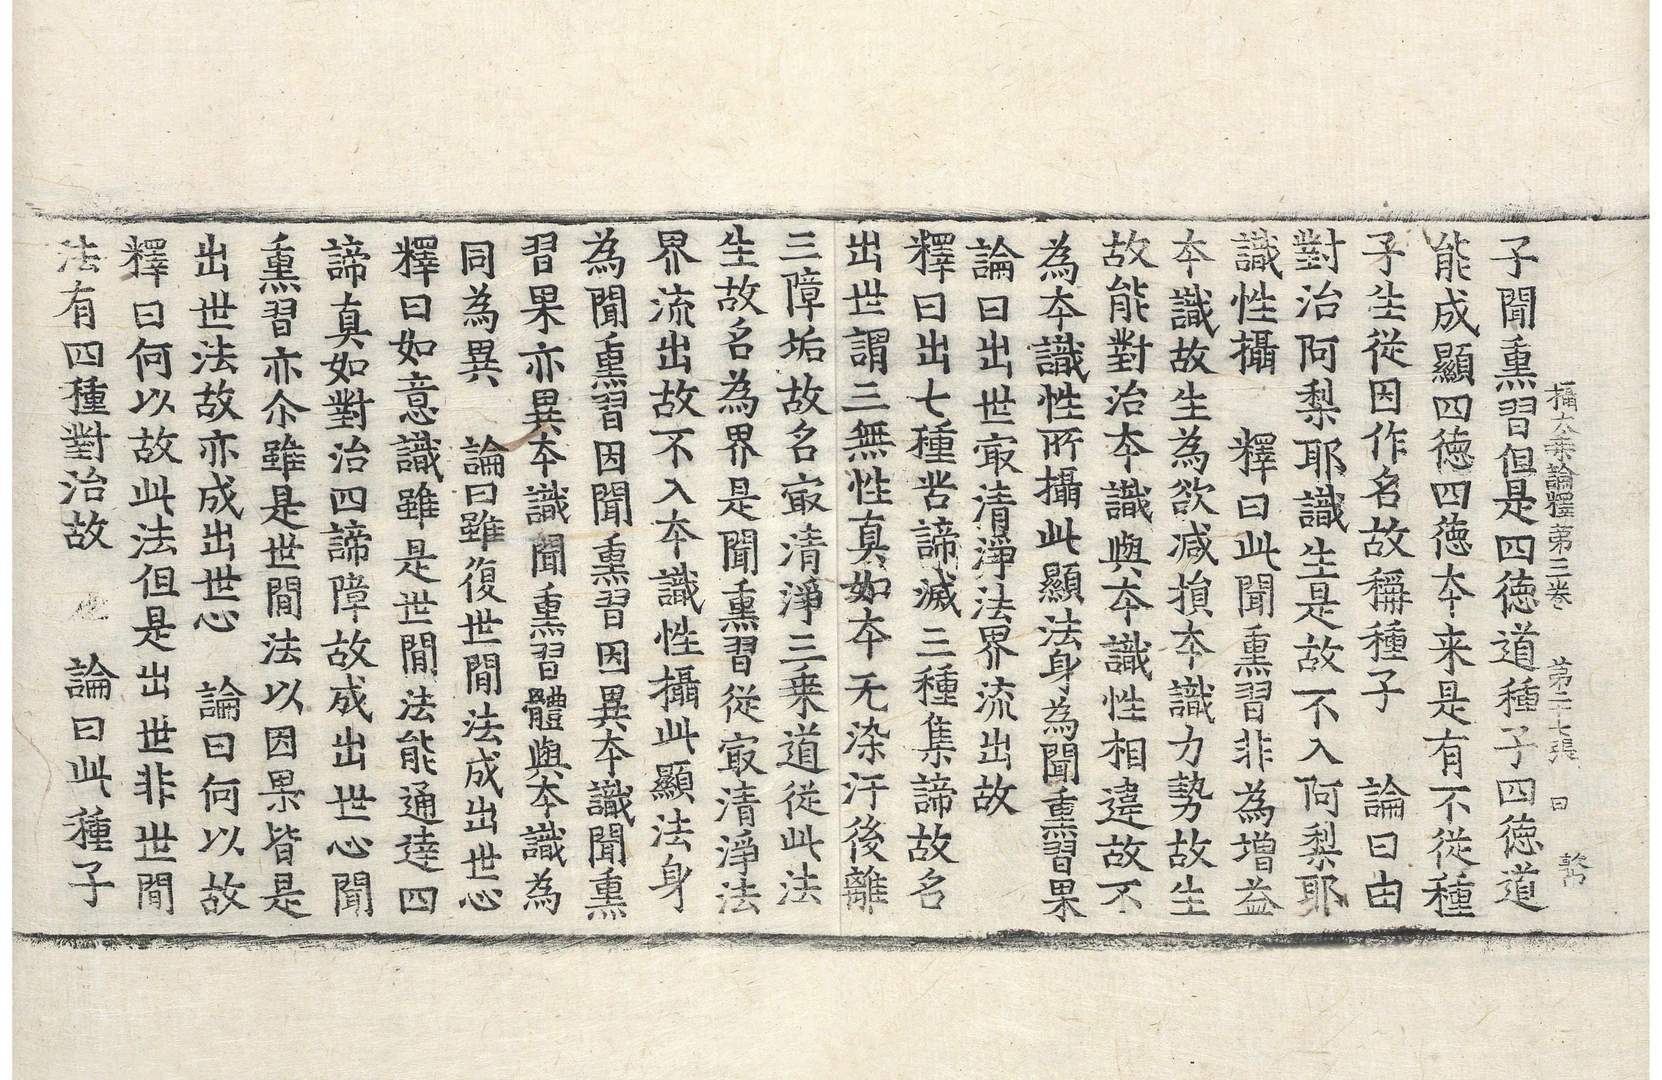 攝大乗論釋第三卷　第二十七張　曰
子聞熏習但是四徳道種子四徳道
能成顯四徳四徳夲来是有不従種
子生從因作名故稱種子　論曰由
對治阿梨耶識生是故不入阿梨耶
識性攝　釋曰此聞熏習非為增益
夲識故生為欲减損夲識力勢故生
故能對治夲識與夲識性相違故不
為夲識性所攝此顯法身為聞熏習果
論曰出世㝡清淨法界流出故
釋曰出七種苦諦滅三種集諦故名
出世謂三無性真如夲无染汙後離
三障垢故名㝡清淨三乗道從此法
生故名為界是聞熏習從㝡清淨法
界流出故不入夲識性攝此顯法身
為聞熏習因聞熏習因異夲識聞熏
習果亦異夲識聞熏習體與夲識為
同為異　論曰雖復世間法成出世心
釋曰如意識雖是世間法能通達四
諦真如對治四諦障故成出世心聞
熏習亦尒雖是世間法以因果皆是
出世法故亦成出世心　論曰何以故
釋曰何以故此法但是出世非世間
法有四種對治故　論曰此種子